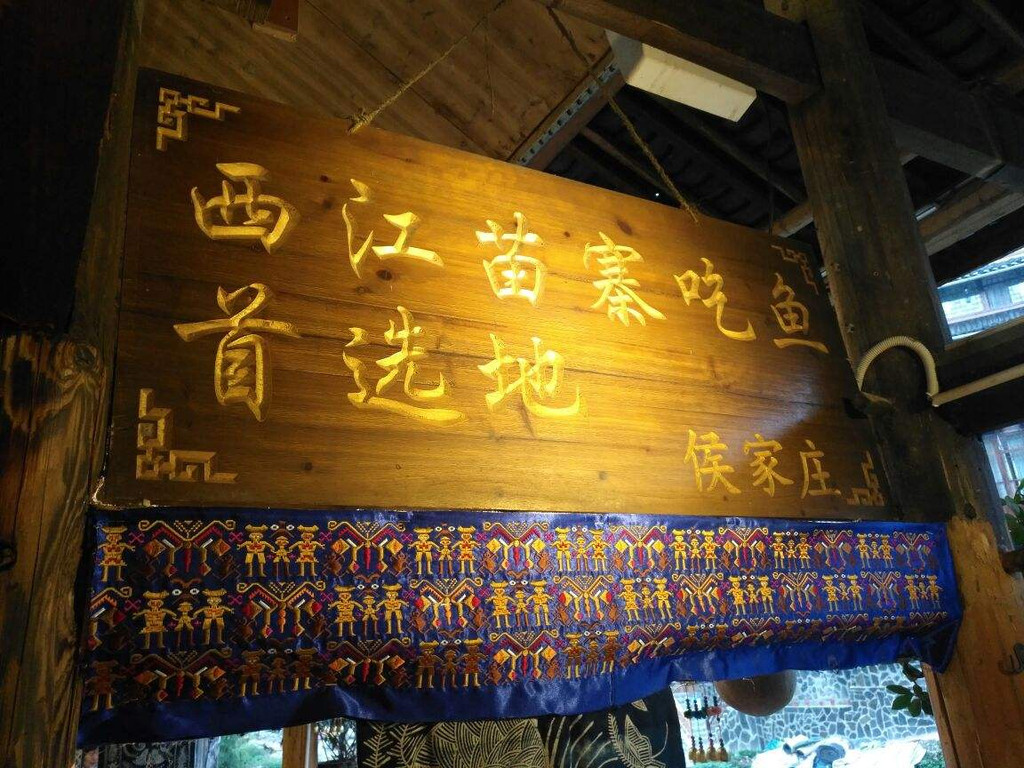 西江苗寨吃鱼
首选地
侯家庄